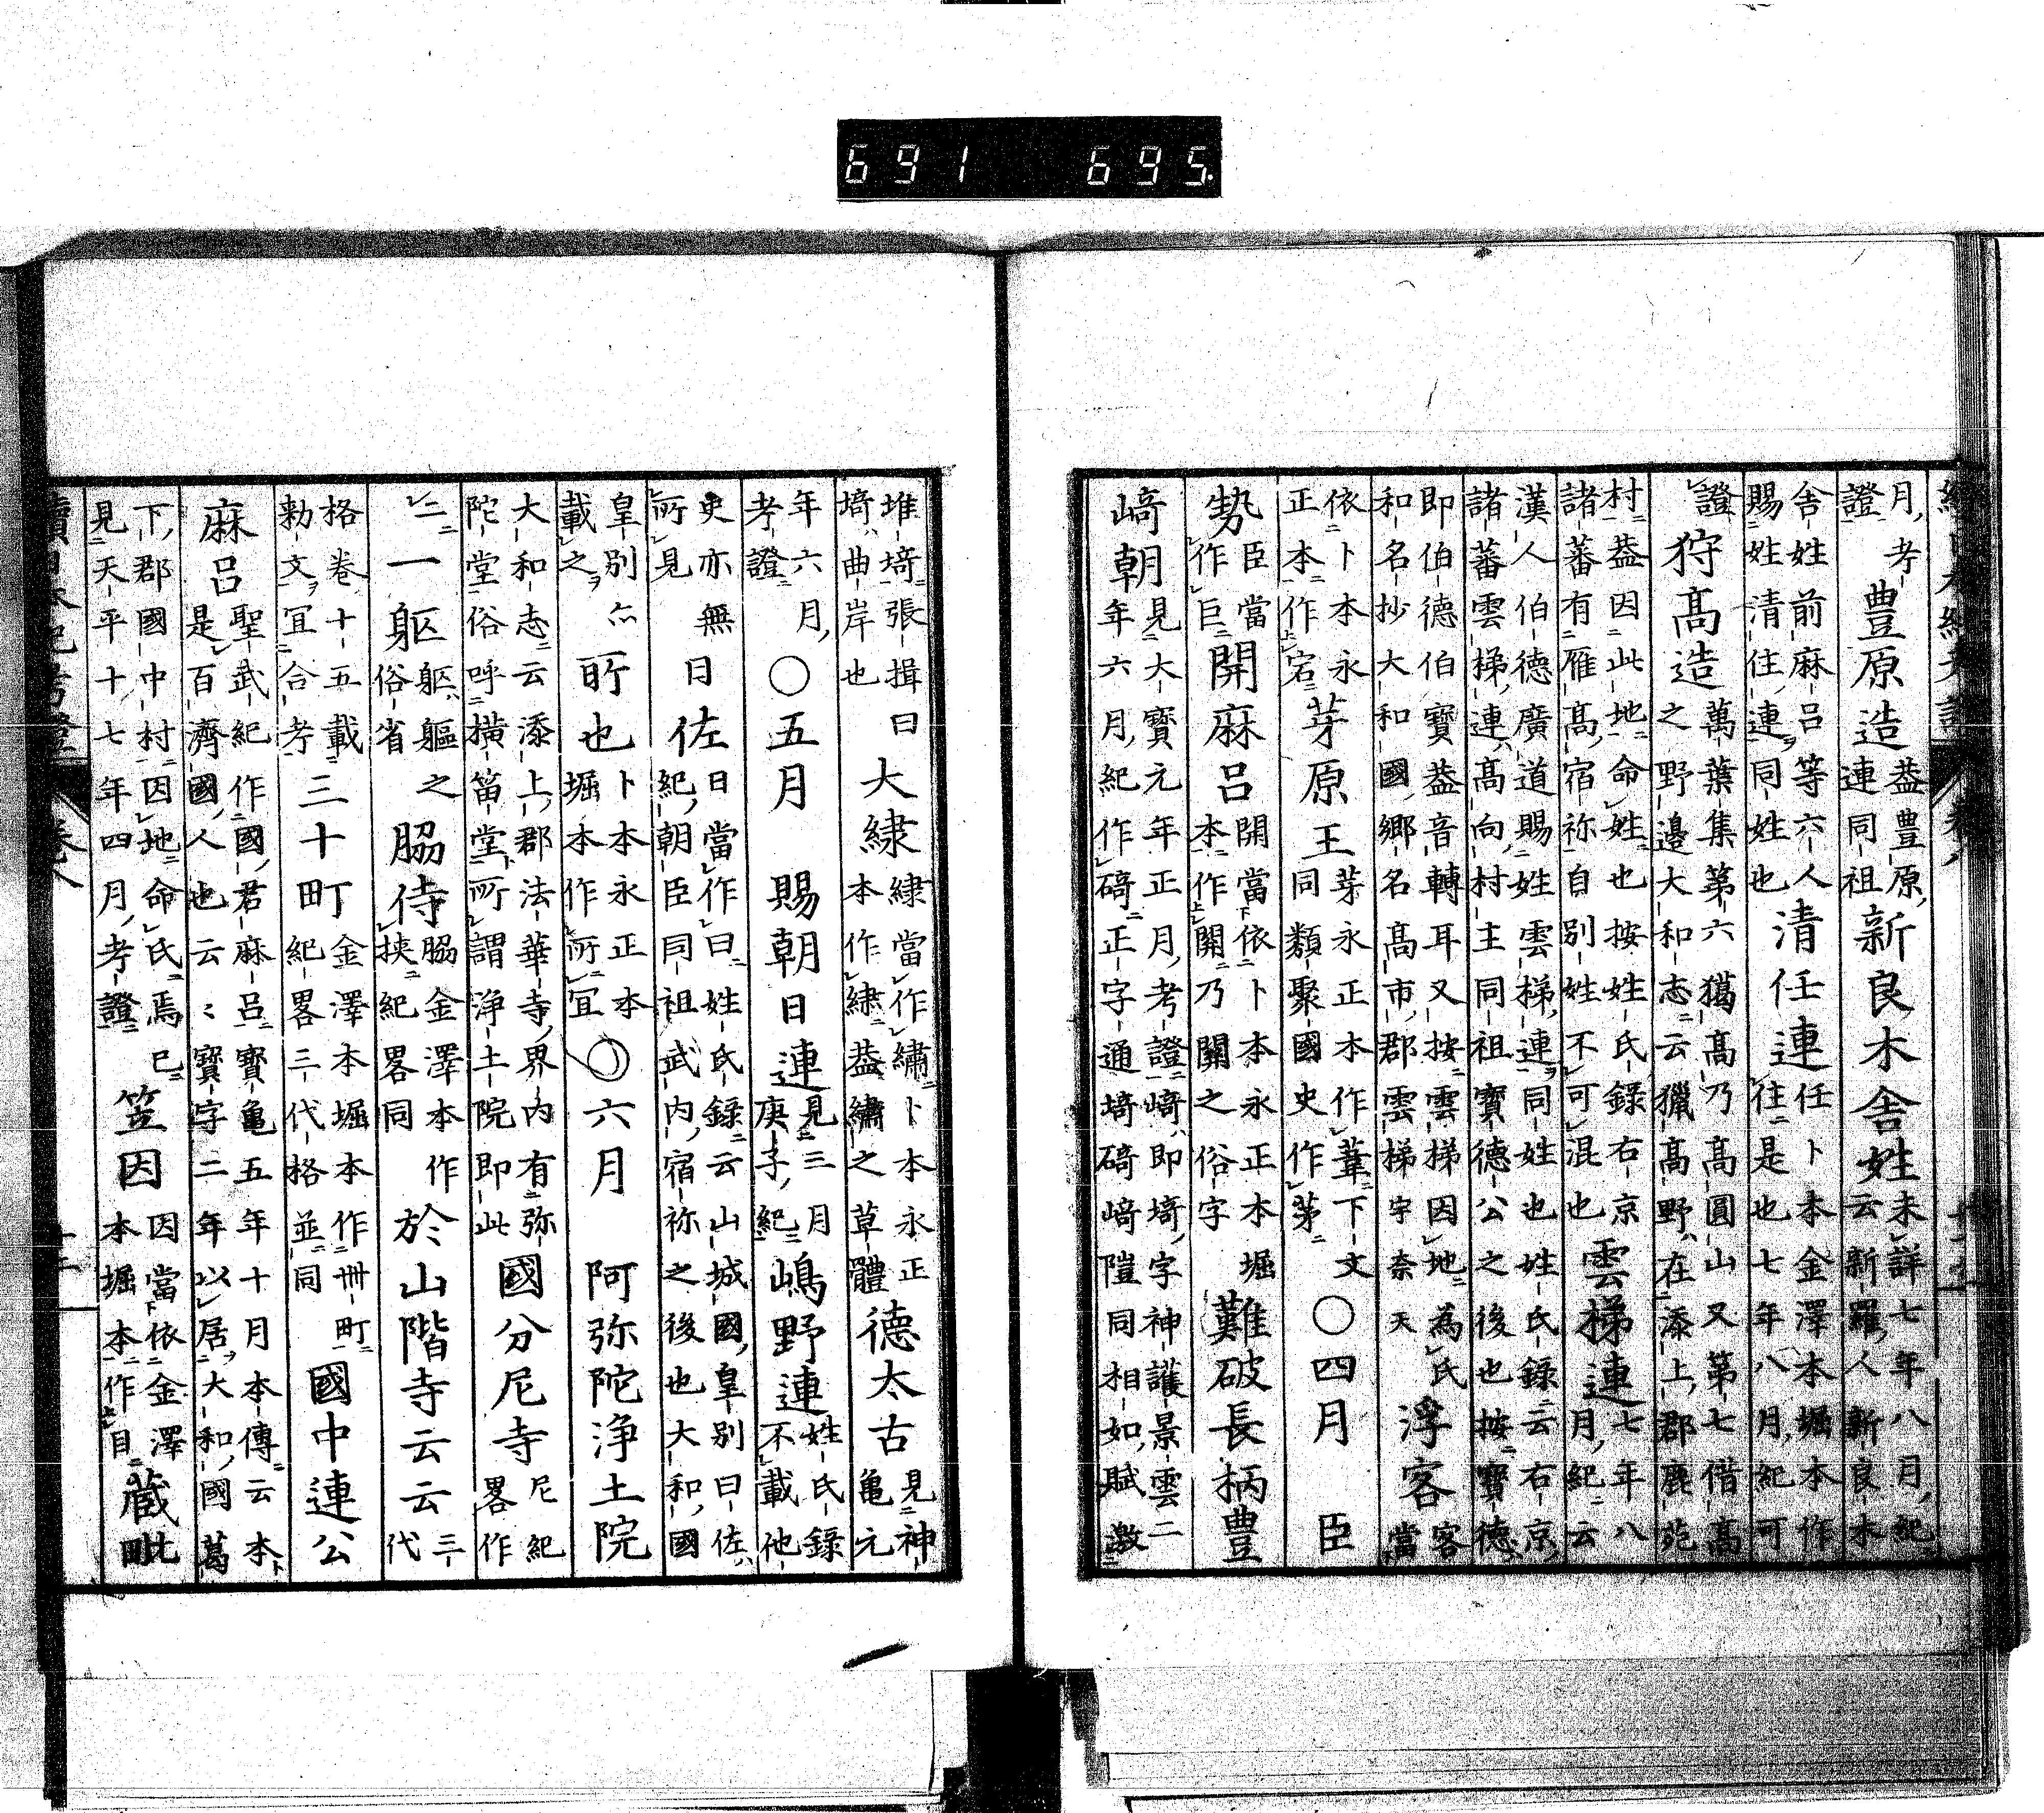 月考證豊原造蓋豊原連同祖新良木舍姓未詳七年八月紀云新羅人新良木
舍姓前麻呂等六人賜姓清住連同姓也清任連任卜本金澤本堀本作住是也七年八月紀可
證狩髙造萬葉集第六獦髙乃髙圓山又第七借髙之野邊大和志云獵髙野在添上郡鹿苑
村蓋因此地命姓也按姓氏錄右京諸蕃有雁髙宿祢自別姓不可混也雲梯連七年八月紀云
漢人伯德廣道賜姓雲梯連同姓也姓氏錄云右京諸蕃雲梯連髙向村主同祖寶德公之後也按寶德
即伯德伯寶蓋音轉耳又按雲梯因地為氏和名抄大和國鄉名髙市郡雲梯宇奈天浮客客當
依卜本永正本作宕芽原王芽永正本作葦下文同類聚國史作茅〇四月 臣
勢臣當作巨開麻呂開當依卜本永正本堀本作開乃關之俗字難破長柄豊
﨑朝見大寶元年正月考證﨑即埼字神護景雲二年六月紀作碕正字通埼碕﨑隑同相如賦激
堆埼張揖曰埼曲岸也大當作繡卜本永正本作蓋繡之草體德太古見神亀元
年六月考證〇五月 賜朝日連見三月庚子紀嶋野連姓氏錄不載他
史亦無所見日佐日當作曰姓氏錄云山城國皇別曰佐紀朝臣同祖武内宿祢之後也大和國
皇別亦載之所也卜本永正本堀本作所宜〇六月 阿弥陀浄土院
大和志云添上郡法華寺界内有弥陀堂俗呼橫笛堂所謂浄土院即此國分尼寺尼紀畧作
二一躯躯軀之俗省脇侍脇金澤本作挟紀畧同於山階寺云云三代
格卷十五載勅文宜合考三十町金澤本堀本作卅町紀畧三代格並同國中連公
麻呂聖武紀作國君麻呂是寶亀五年十月本傳云本百濟國人也云〻寶字二年以居大和國葛
下郡國中村因地命氏焉已見天平十七年四月考證笠因因當依金澤本堀本作目蔵毗